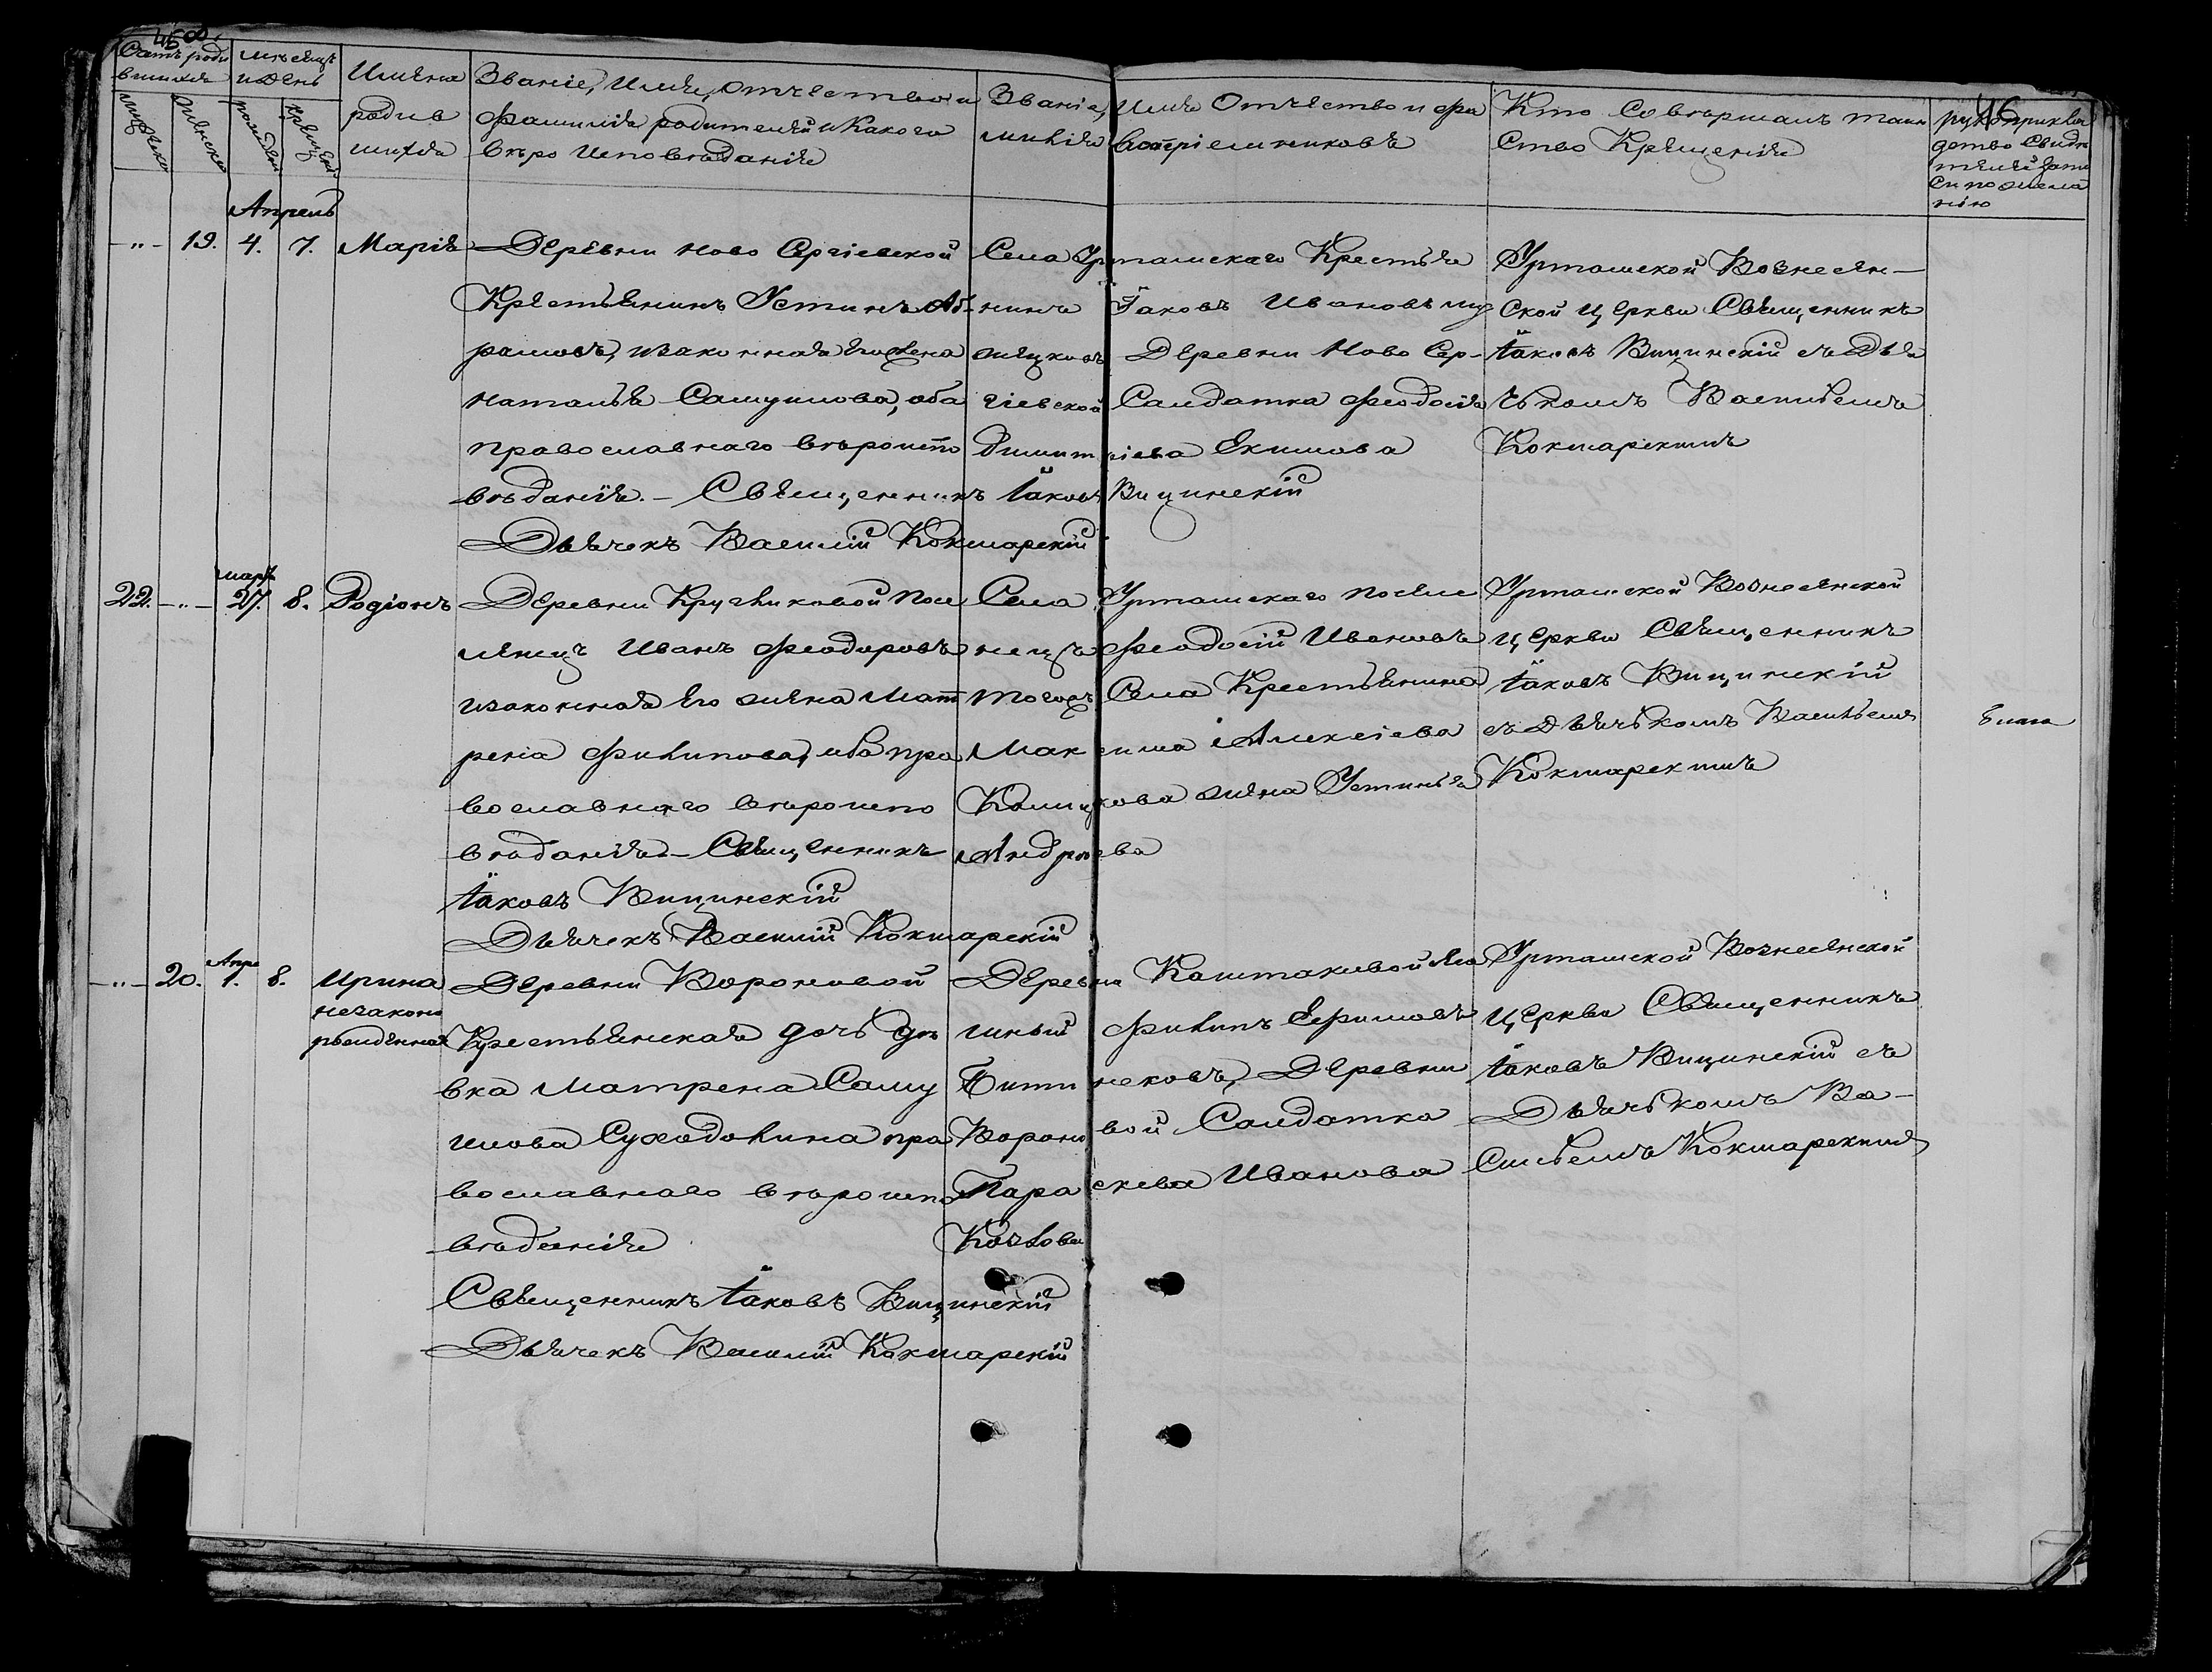 458.
45
Счетъ роди
вшихся
Мѣсяцъ
и День
мужеска
женска
рожденія
крещенія
Имена
родив
шихся
Званіе, Имя, отчество и
фамилія родителей и какого
вѣроисповѣданія
Званіе, Имя Отчество и фа
милія воспріемниковъ
Кто Совершалъ таин
Ство Крещенія
рукоприкла
дство Свидѣ
телей запи
си по жела
нію
Апрель
-„- 19. 4. 7. Марія
Деревни Ново Сергіевской
Крестьянинъ Устинъ Аб-
рамовъ, изаконная его жена
Наталья Самуилова, оба
православнаго вѣроиспо
вѣданія. - Священникъ Іаковъ Вицинскій
Дьячекъ Василій Кокшарскій
Села Урташскаго Крестья
нинъ Іаковъ Ивановъ
Деревни Ново Сер-
гіевской Салдатка Феодосія
Димитріева Екимова
Урташской Вознесен-
ской Церкви Священникъ
Іаковъ Вицинскій съ Дья
чькомъ Васильемъ
Кокшарскимъ
22. -„- мар. 27. 8. Родіонъ
Деревни Кругликовой Посе
ленецъ Иванъ Феодоровъ
изаконная Его жена Мат
рена Филипова, оба пра
вославнаго вѣроиспо
вѣданія - Священникъ
Іаковъ Вицинскій
Дьячекъ Василій Кокшарскій
Села Урташскаго поселе
нецъ Феодосій Ивановъ
тогожъ Села Крестьянина
Максима Алексіева
жена Устинья
Андреева
Урташской Вознесенской
Церкви Священникъ
Іаковъ Вицинскій
съ Дьячькомъ Васильемъ
Кокшарскимъ
-„- 20. Апре 1. 8. Ирина
незаконо
рожденная
Деревни Вороновой
Крестьянская дочь дѣ
вка Матрена Саму
илова Суходолина пра
вославнаго вѣроиспо
вѣданія
Священникъ Іаковъ Вицинскій
Дьячекъ Василій Кокшарскій
Деревни Каштаковой Яса
шный Филипъ Ефимовъ
Битинековъ, Деревни
Вороновой Салдатка
Параскева Иванова
Козлова
Урташской Вознесенской
Церкви Священникъ
Іаковъ Вицинскій съ
Дьячькомъ Ва-
сильемъ Кокшарскимъ